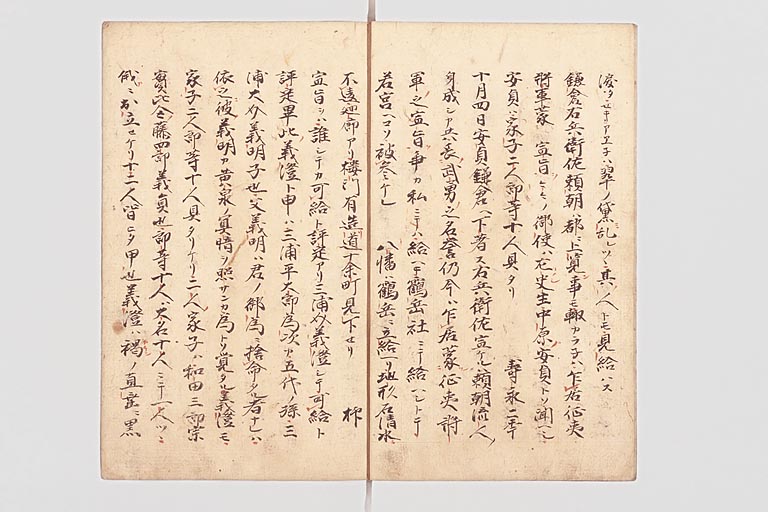 鎌倉右兵衛佐頼朝ハ都ニ上寛事モ輙カラ子ハ乍居征夷
将軍蒙宣旨ケルトソ御使ハ左史生中原安貞トソ聞ヘシ
安貞ハ家子二人郎等十人具タリ 壽永二年
十月四日安貞鎌倉ヘ下者ス右兵衛佐宣ケルハ頼朝流人ノ
身成シカ共ハ武勇之名誉仍今ハ乍居蒙征夷将
軍之宣旨争カ私ニテハ給ヘキ鶴岳社ニテ給ヘシトテ
若宮ヘコソ被参ケレ 八幡ハ鶴岳ニ立給ヘリ地形石清水ニ
不違廻廊アリ楼門有造道十余町見下セリ 抑
宣旨ヲハ誰シテカ可給ト評定アリ三浦介義澄シテ可給ト
評定畢此義澄ト申ハ三浦平太郎為次カ五代ノ孫ニ三
浦大介義明子也父義明ハ君ノ御為ニ捨命タル者ナレハ
依之彼義明カ黄泉ノ冥暗ヲ照サンカ為トソ見タル義澄モ
家子二人郎等十人具タリケリ二人ノ家子ハ和田三郎宗
實比企藤四郎義員也郎等十人ハ大名十人ニテ一人ツヽ
俄ニ出立セケリ十二人皆ヒタ甲也義澄ハ褐ノ直垂ニ黒